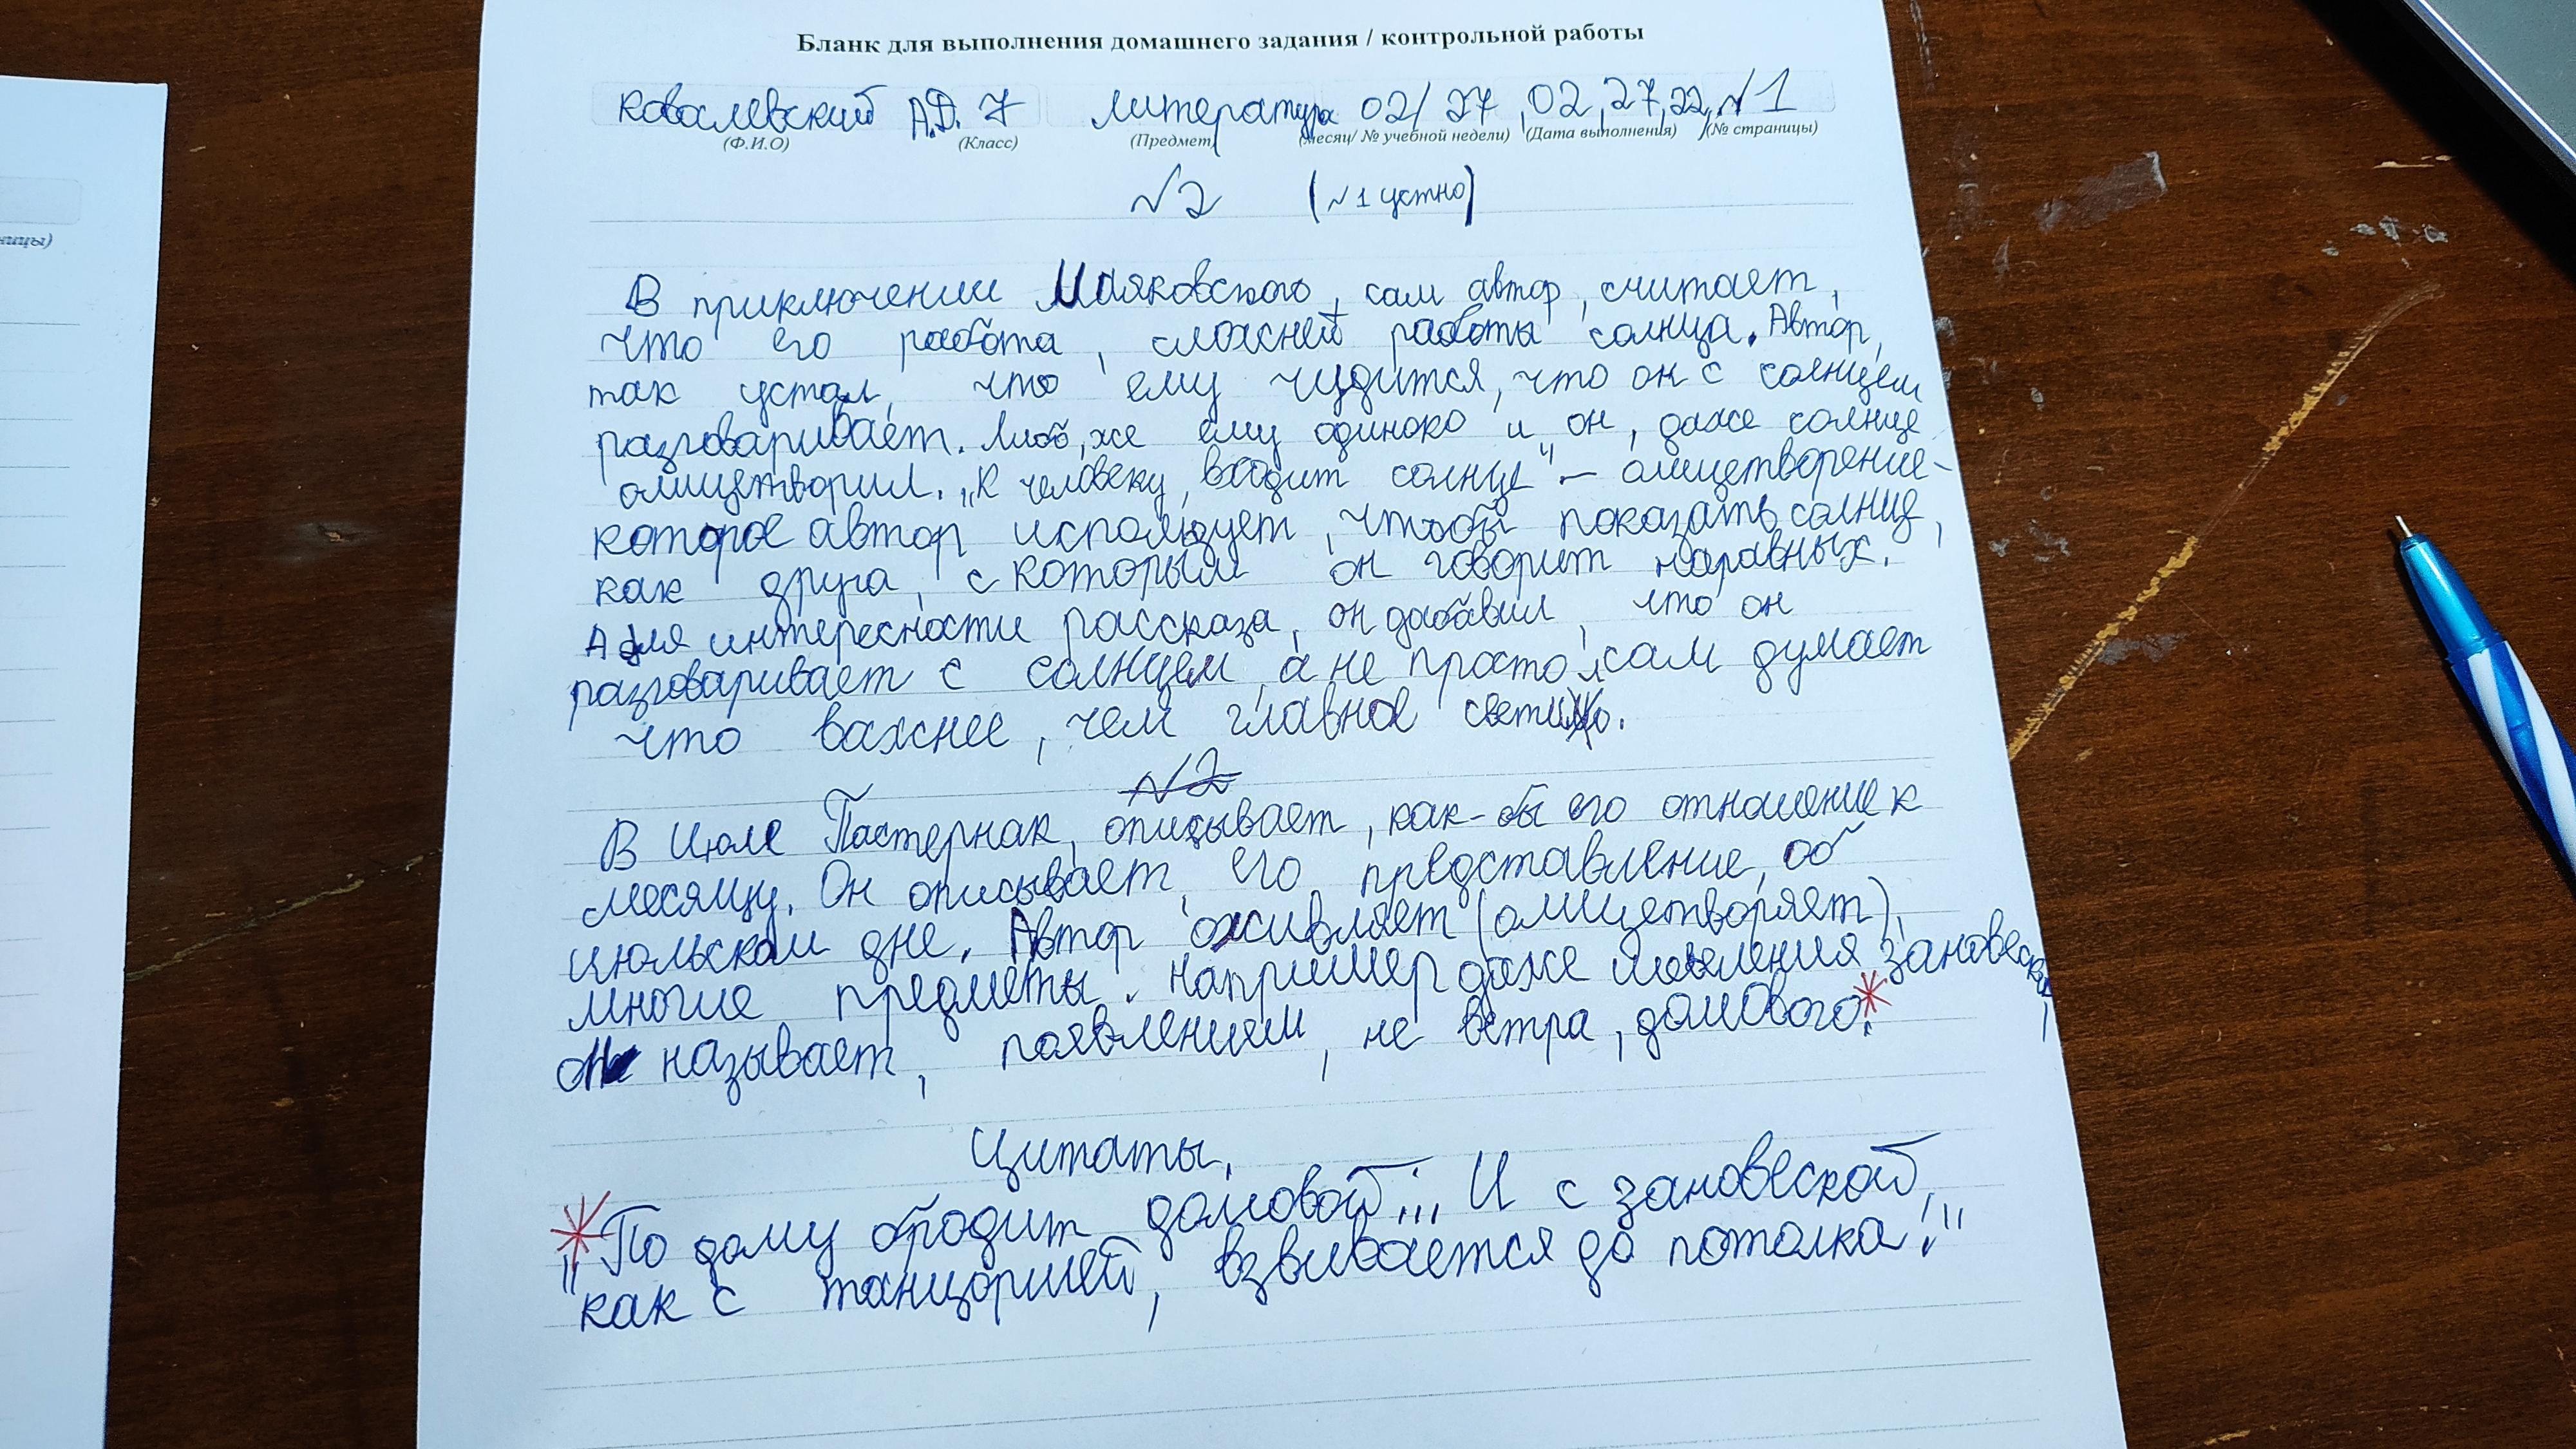 Бланк для выполнения домашнего задания / контрольной работы
Ковалевский А.Д. 7 Литература 02/27, 02,27,22, №1
(Ф.И.О) (Класс) (Предмет) (месяц/ № учебной недели) (Дата выполнения) (№ страницы)
№2 (№1 устно)
ницы)
В приключении Маяковского, сам автор, считает,
что его работа, сложней работы солнца. Автор,
так устал, что ему чудится, что он с солнцем
разговаривает. Либо, же ему одиноко и он, даже солнце
олицетворил. „К человеку, входит солнце" – олицетворение-
которое автор использует, чтобы показать солнце,
как друга, с которым он говорит наравных.
А для интересности рассказа, он добавил, что он
разговаривает с солнцем, а не просто, сам думает
что важнее, чем главное светило.
№2
В Июле Пастернак, описывает, как-бы его отношение к
месяцу. Он описывает, его, представление, об
июльском дне. Автор оживляет (олицетворяет),
многие предметы. Например даже шевеления зановески,
он называет, появлением, не ветра, домового.*
Цитаты.
*„По дому бродит домовой... И с зановеской,
как с танцоршей, взвивается до потолка."